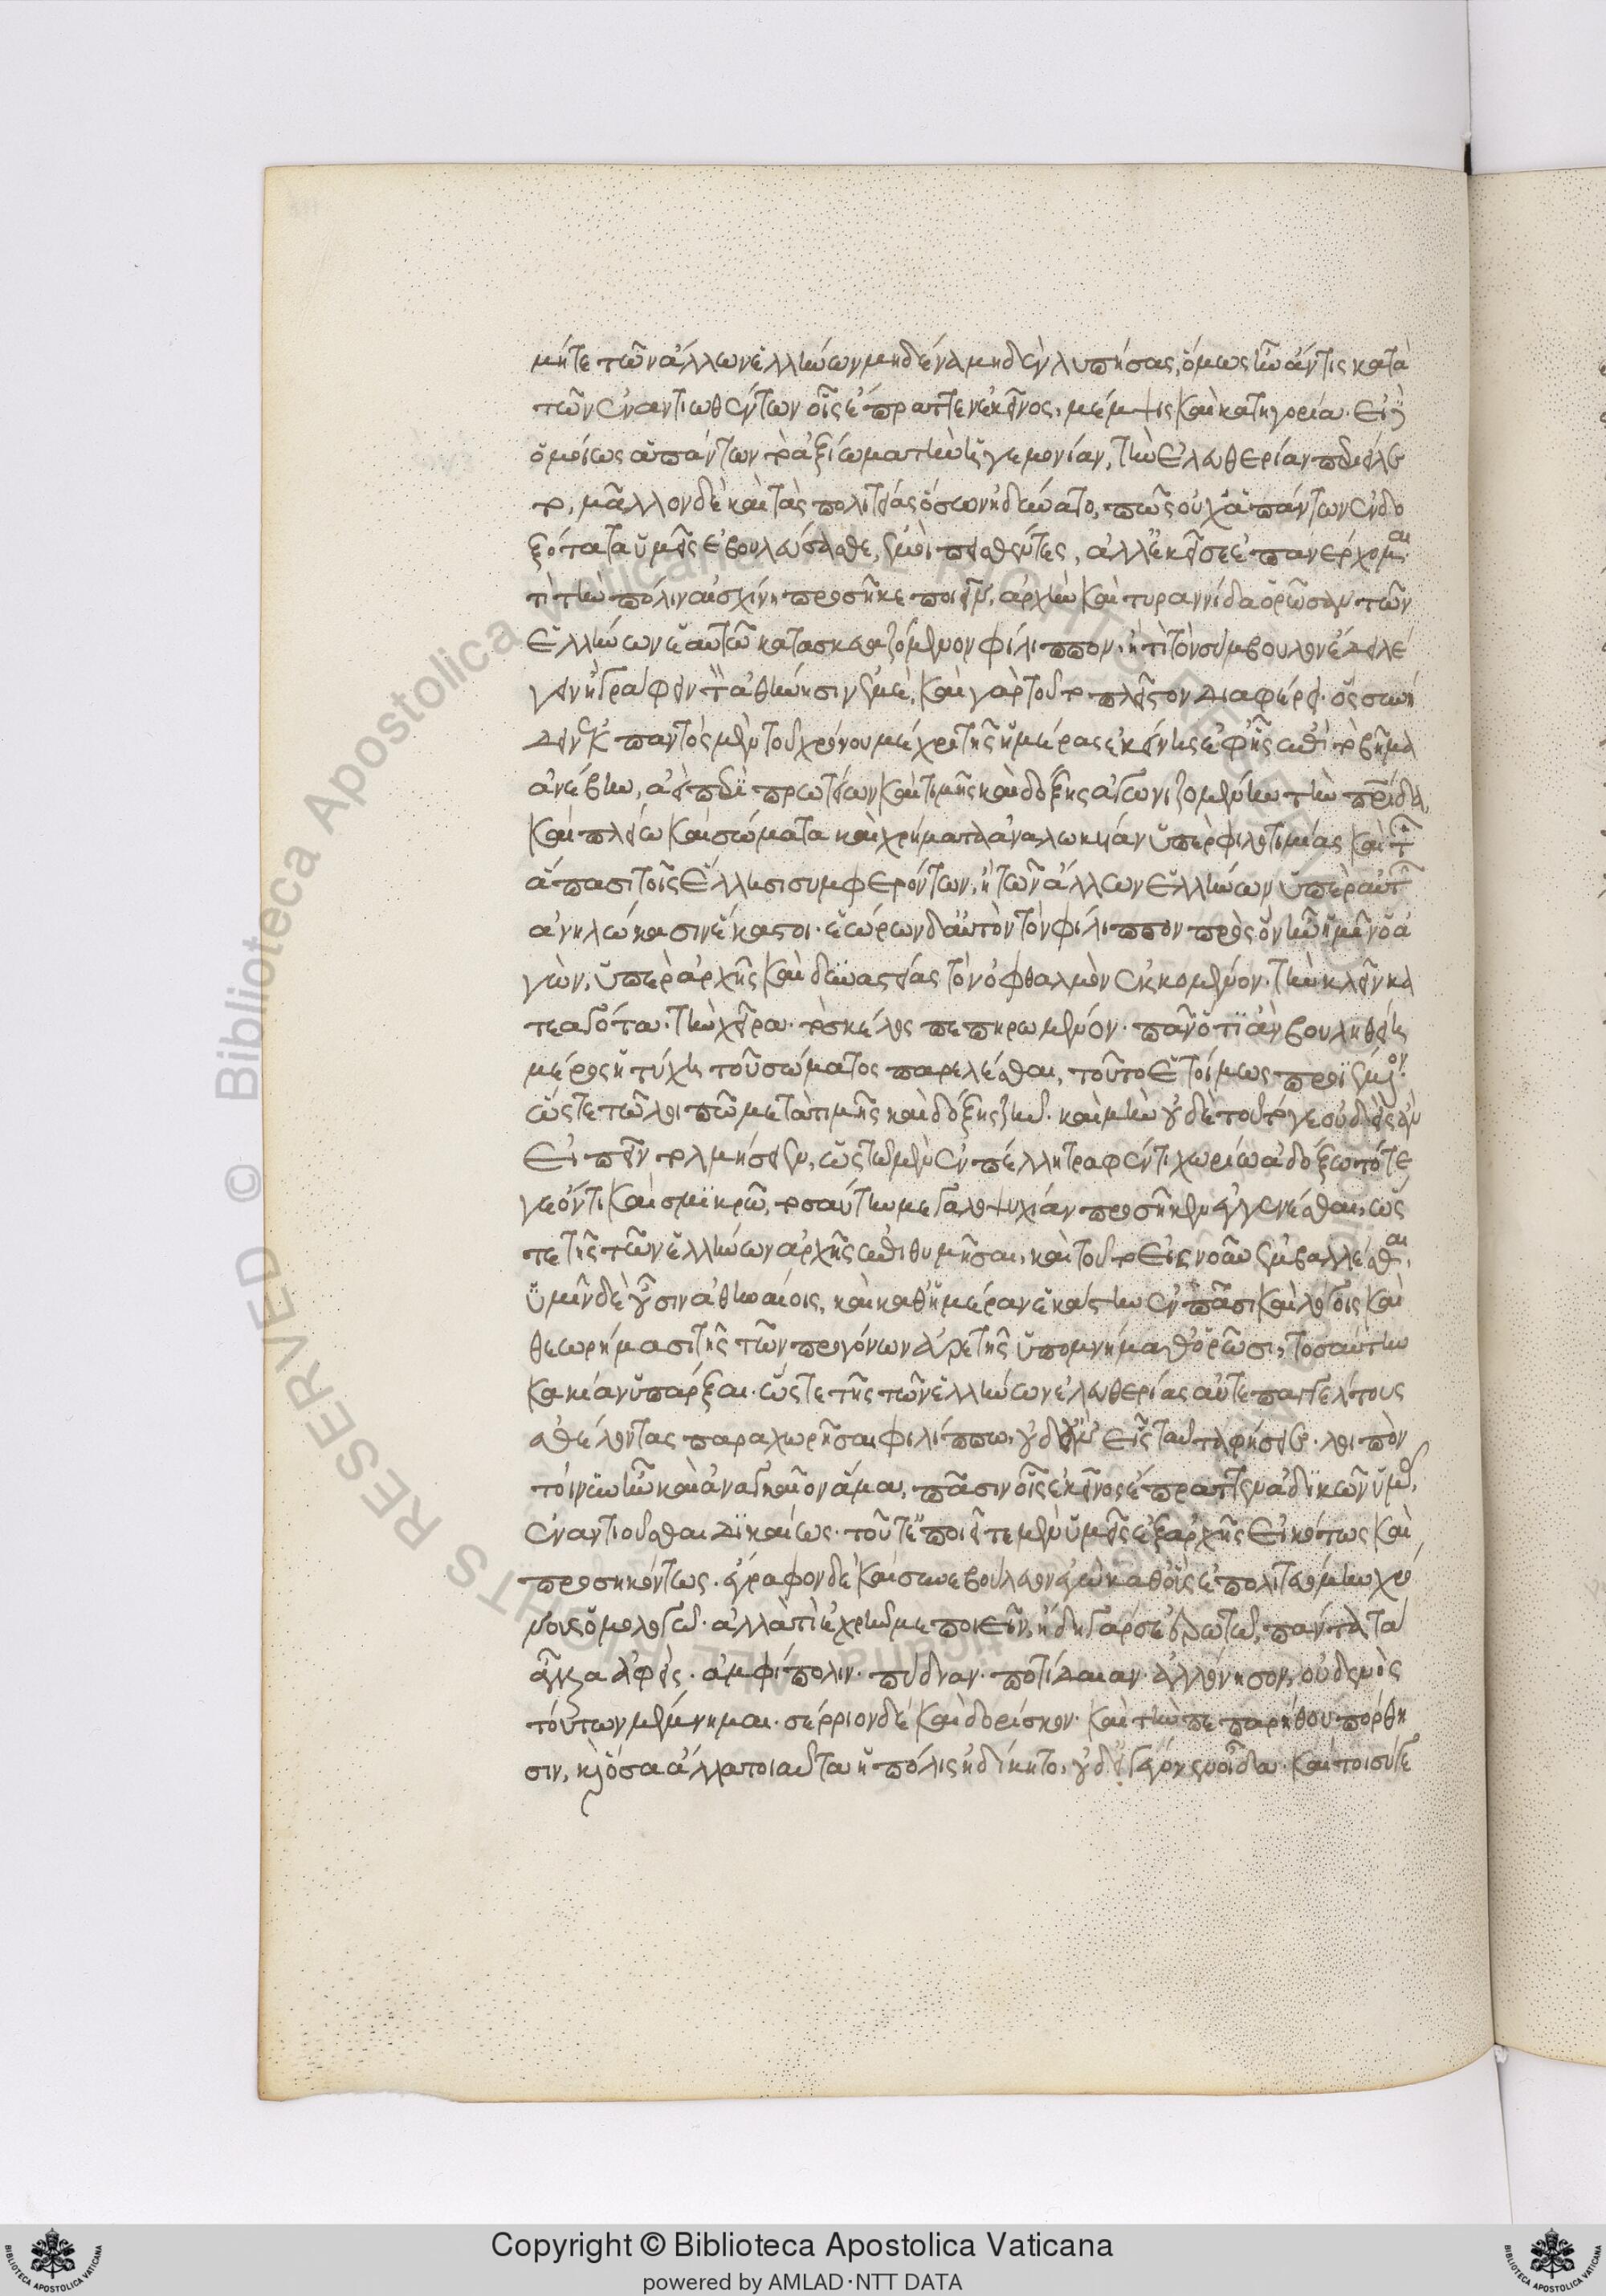 μήτε τῶν ἄλλων ἑλλήνων μηδένα μηδὲν λυπήσας, ὅμως ἦν ἄν τις κατὰ
τῶν ἐναντιωθέντων οἷς ἔπραττεν ἐκεῖνος, μέμψις καὶ κατηγορία. εἰ δ'
ὁμοίως ἁπάντων τὸ ἀξίωμα τὴν ἡγεμονίαν, τὴν ἐλευθερίαν περιείλε
το, μᾶλλον δὲ καὶ τὰς πολιτείας ὅσων ἠδύνατο, πῶς οὐχ ἁπάντων ἐνδο
ξότατα ὑμεῖς ἐβουλεύσασθε, ἐμοὶ πεισθέντες, ἀλλ' ἐκεῖσε ἐπανέρχομαι.
τί τὴν πόλιν αἰσχίνη προσῆκε ποιεῖν, ἀρχὴν καὶ τυραννίδα ὁρῶσαν τῶν
ἑλλήνων ἑαυτῷ κατασκευαζόμενον φίλιππον. ἢ τί τὸν σύμβουλον ἔδει λέ
γειν ἢ γράφειν τὸν ἀθήνησιν ἐμὲ, καὶ γὰρ τοῦτο πλεῖστον διαφέρει. ὃς συνῄ
δειν ἐκ παντὸς μὲν τοῦ χρόνου μέχρι τῆς ἡμέρας ἐκείνης ἐφ' ἧς ἐπὶ τὸ βῆμα
ἀνέβην, ἀεὶ περὶ πρωτείων καὶ τιμῆς καὶ δόξης ἀγωνιζομένην τὴν πατρίδα,
καὶ πλείω καὶ σώματα καὶ χρήματα ἀναλωκυῖαν ὑπὲρ φιλοτιμίας καὶ τῶν
ἅπασι τοῖς ἕλλησι συμφερόντων, ἢ τῶν ἄλλων ἑλλήνων ὑπὲρ αὑτῶν
ἀνηλώκασιν ἕκαστοι. ἑώρων δ' αὐτὸν τὸν φίλιππον πρὸς ὃν ἦν ἡμῖν ὁ ἀ
γὼν, ὑπὲρ ἀρχῆς καὶ δυναστείας τὸν ὀφθαλμὸν ἐκκεκομμένον. τὴν κλεῖν κα
τεαγότα. τὴν χεῖρα. τὸ σκέλος πεπηρωμένον. πᾶν ὅ τι ἂν βουληθείη
μέρος ἡ τύχη τοῦ σώματος παρελέσθαι, τοῦτο ἑτοίμως προϊέμενον.
ὥστε τῷ λοιπῷ μετὰ τιμῆς καὶ δόξης ζῆν. καὶ μὴν οὐδὲ τοῦτό γε οὐδεὶς ἂν
εἰπεῖν τολμήσειεν, ὡς τῷ μὲν ἐν πέλλῃ τραφέντι χωρίῳ ἀδόξῳ τότε
γε ὄντι καὶ σμικρῷ, τοσαύτην μεγαλοψυχίαν προσῆκεν ἐγγενέσθαι, ὥς
τε τῆς τῶν ἑλλήνων ἀρχῆς ἐπιθυμῆσαι, καὶ τοῦτο εἰς νοῦν ἐμβαλλέσθαι,
ὑμῖν δὲ οὖσιν ἀθηναίοις, καὶ καθ' ἡμέραν ἑκάστην ἐν πᾶσι καὶ λόγοις καὶ
θεωρήμασι τῆς τῶν προγόνων ἀρετῆς ὑπομνήμαθ' ὁρῶσι, τοσαύτην
κακίαν ὑπάρξαι. ὥστε τῆς τῶν ἑλλήνων ἐλευθερίας αὐτεπαγγέλτους
ἐθέλοντας παραχωρῆσαι φιλίππω, οὐδ' ἂν εἷς ταῦτα φήσειε. λοιπὸν
τοίνυν ἦν καὶ ἀναγκαῖον ἅμα, πᾶσιν οἷς ἐκεῖνος ἔπραττεν ἀδικῶν ὑμᾶς,
ἐναντιοῦσθαι δικαίως. τοῦτ' ἐποιεῖτε μὲν ὑμεῖς ἐξαρχῆς εἰκότως καὶ
προσηκόντως. ἔγραφον δὲ καὶ συνεβούλευον ἐγὼ καθ' οὓς ἐπολιτευόμην χρό
νους ὁμολογῶ. ἀλλὰ τί ἐχρῆν με ποιεῖν, ἤδη γάρ σ' ἐρωτῶ, πάντα ταῦ
τα ἀφεὶς. ἀμφίπολιν. πύδναν. ποτίδαιαν. ἁλλόνησον, οὐδενὸς
τούτων μέμνημαι. σέρριον δὲ καὶ δορίσκον. καὶ τὴν πεπαρήθου πόρθη
σιν, καὶ ὅσα ἄλλα τοιαῦτα ἡ πόλις ἠδίκητο, οὐδ' εἰ γέγονεν οἶδα. καίτοι σύ γε